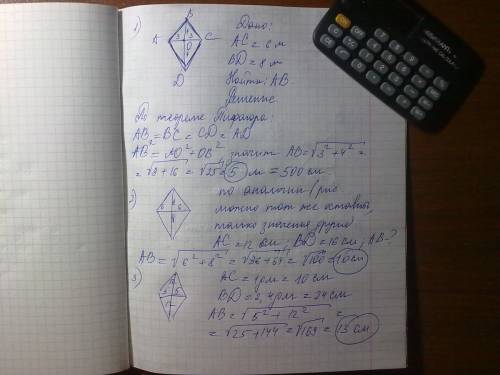 1) B
A 3 3 C
O
D
Дано:
AC = 6 м
BD = 8 м
Найти: AB
Решение
По теореме Пифагора:
AB = BC = CD = AD
AB² = AO² + OB² значит AB = √3² + 4² =
= √9 + 16 = √25 = 5 м = 500 см
2)
6 6
по аналогии (рис
можно тот же оставить,
только значения другие)
AC = 12 см; BD = 16 см; AB - ?
AB = √6² + 8² = √36 + 64 = √100 = 10 см
3)
5 5
12
AC = 1 дм = 10 см
BD = 2,4 дм = 24 см
AB = √5² + 12² =
= √25 + 144 = √169 = 13 см